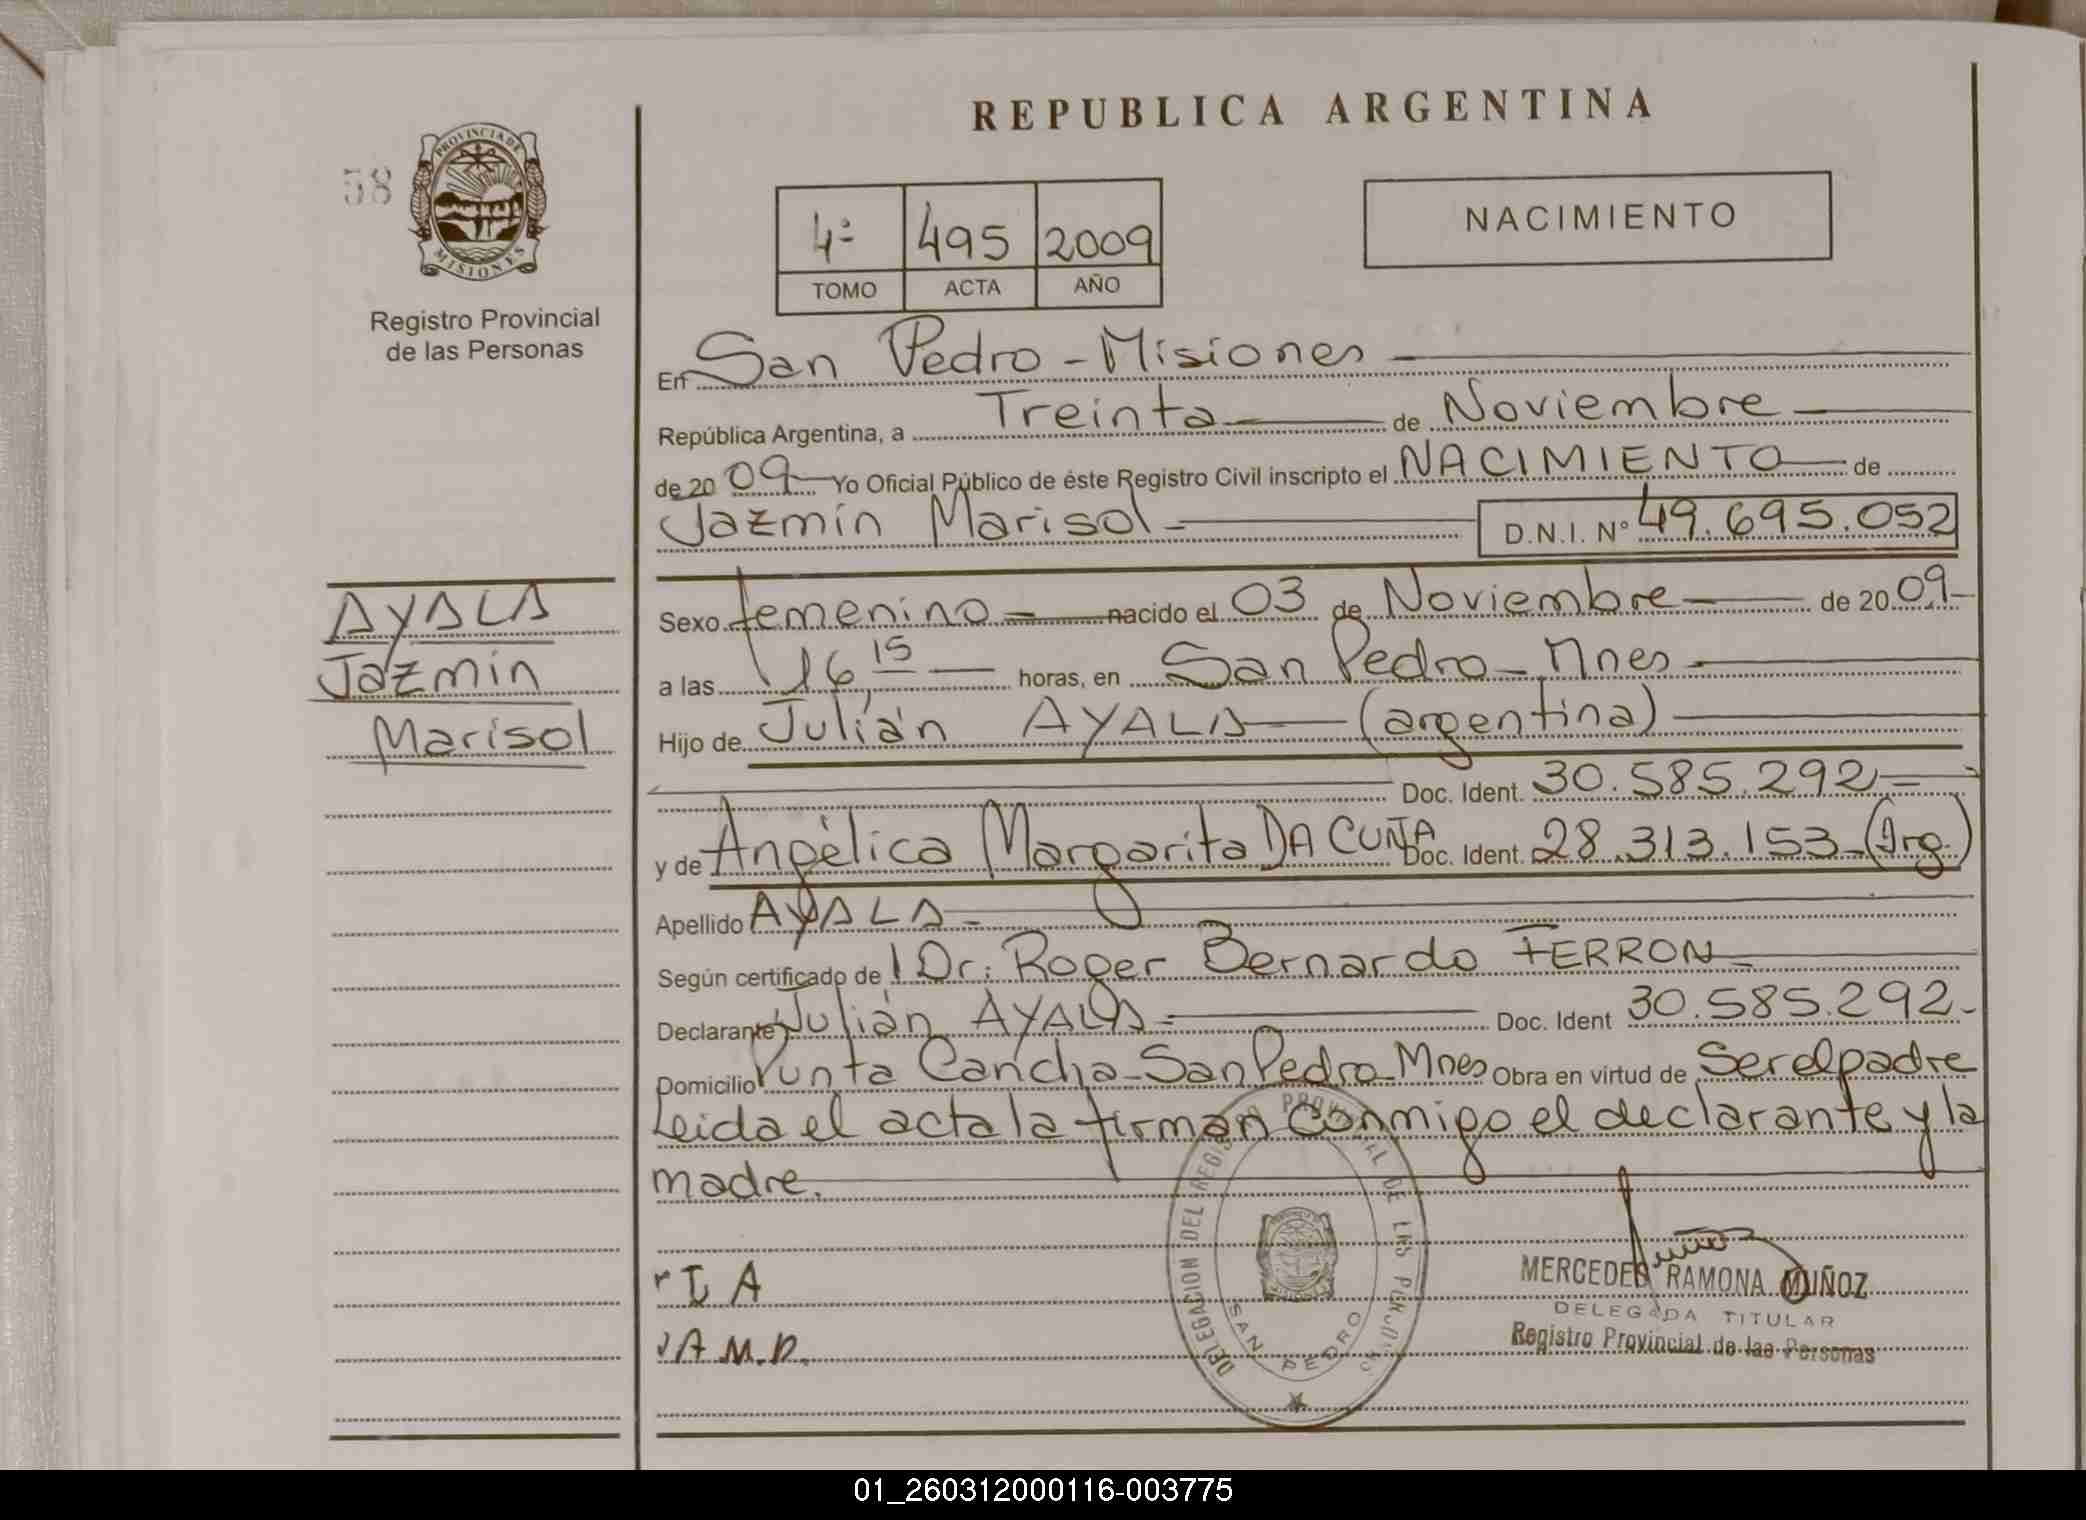 REPUBLICA ARGENTINA
58
PROVINCIA DE
MISIONES
Registro Provincial
de las Personas
4º 495 2009
TOMO ACTA AÑO
NACIMIENTO
En San Pedro - Misiones
República Argentina, a Treinta de Noviembre
de 20 09 Yo Oficial Público de éste Registro Civil inscripto el NACIMIENTO de
Jazmín Marisol D.N.I. Nº 49.695.052
AYALA
Jazmín
Marisol
Sexo femenino nacido el 03 de Noviembre de 20 09
a las 16,15 horas, en San Pedro - Mnes
Hijo de Julián AYALA (argentina)
Doc. Ident. 30.585.292
y de Angélica Margarita DA CUÑA Doc. Ident. 28.313.153 (Arg.)
Apellido AYALA
Según certificado de Dr. Roger Bernardo FERRON
Declarante Julián AYALA Doc. Ident 30.585.292
Domicilio Punta Cancha - San Pedro - Mnes Obra en virtud de Ser el padre
Leida el acta la firman conmigo el declarante y la
madre.
DELEGACION DEL REGISTRO PROVINCIAL DE LAS PERSONAS
SAN PEDRO
J A
A M.D.
MERCEDES RAMONA MUÑOZ
DELEGADA TITULAR
Registro Provincial de las Personas
01_260312000116-003775